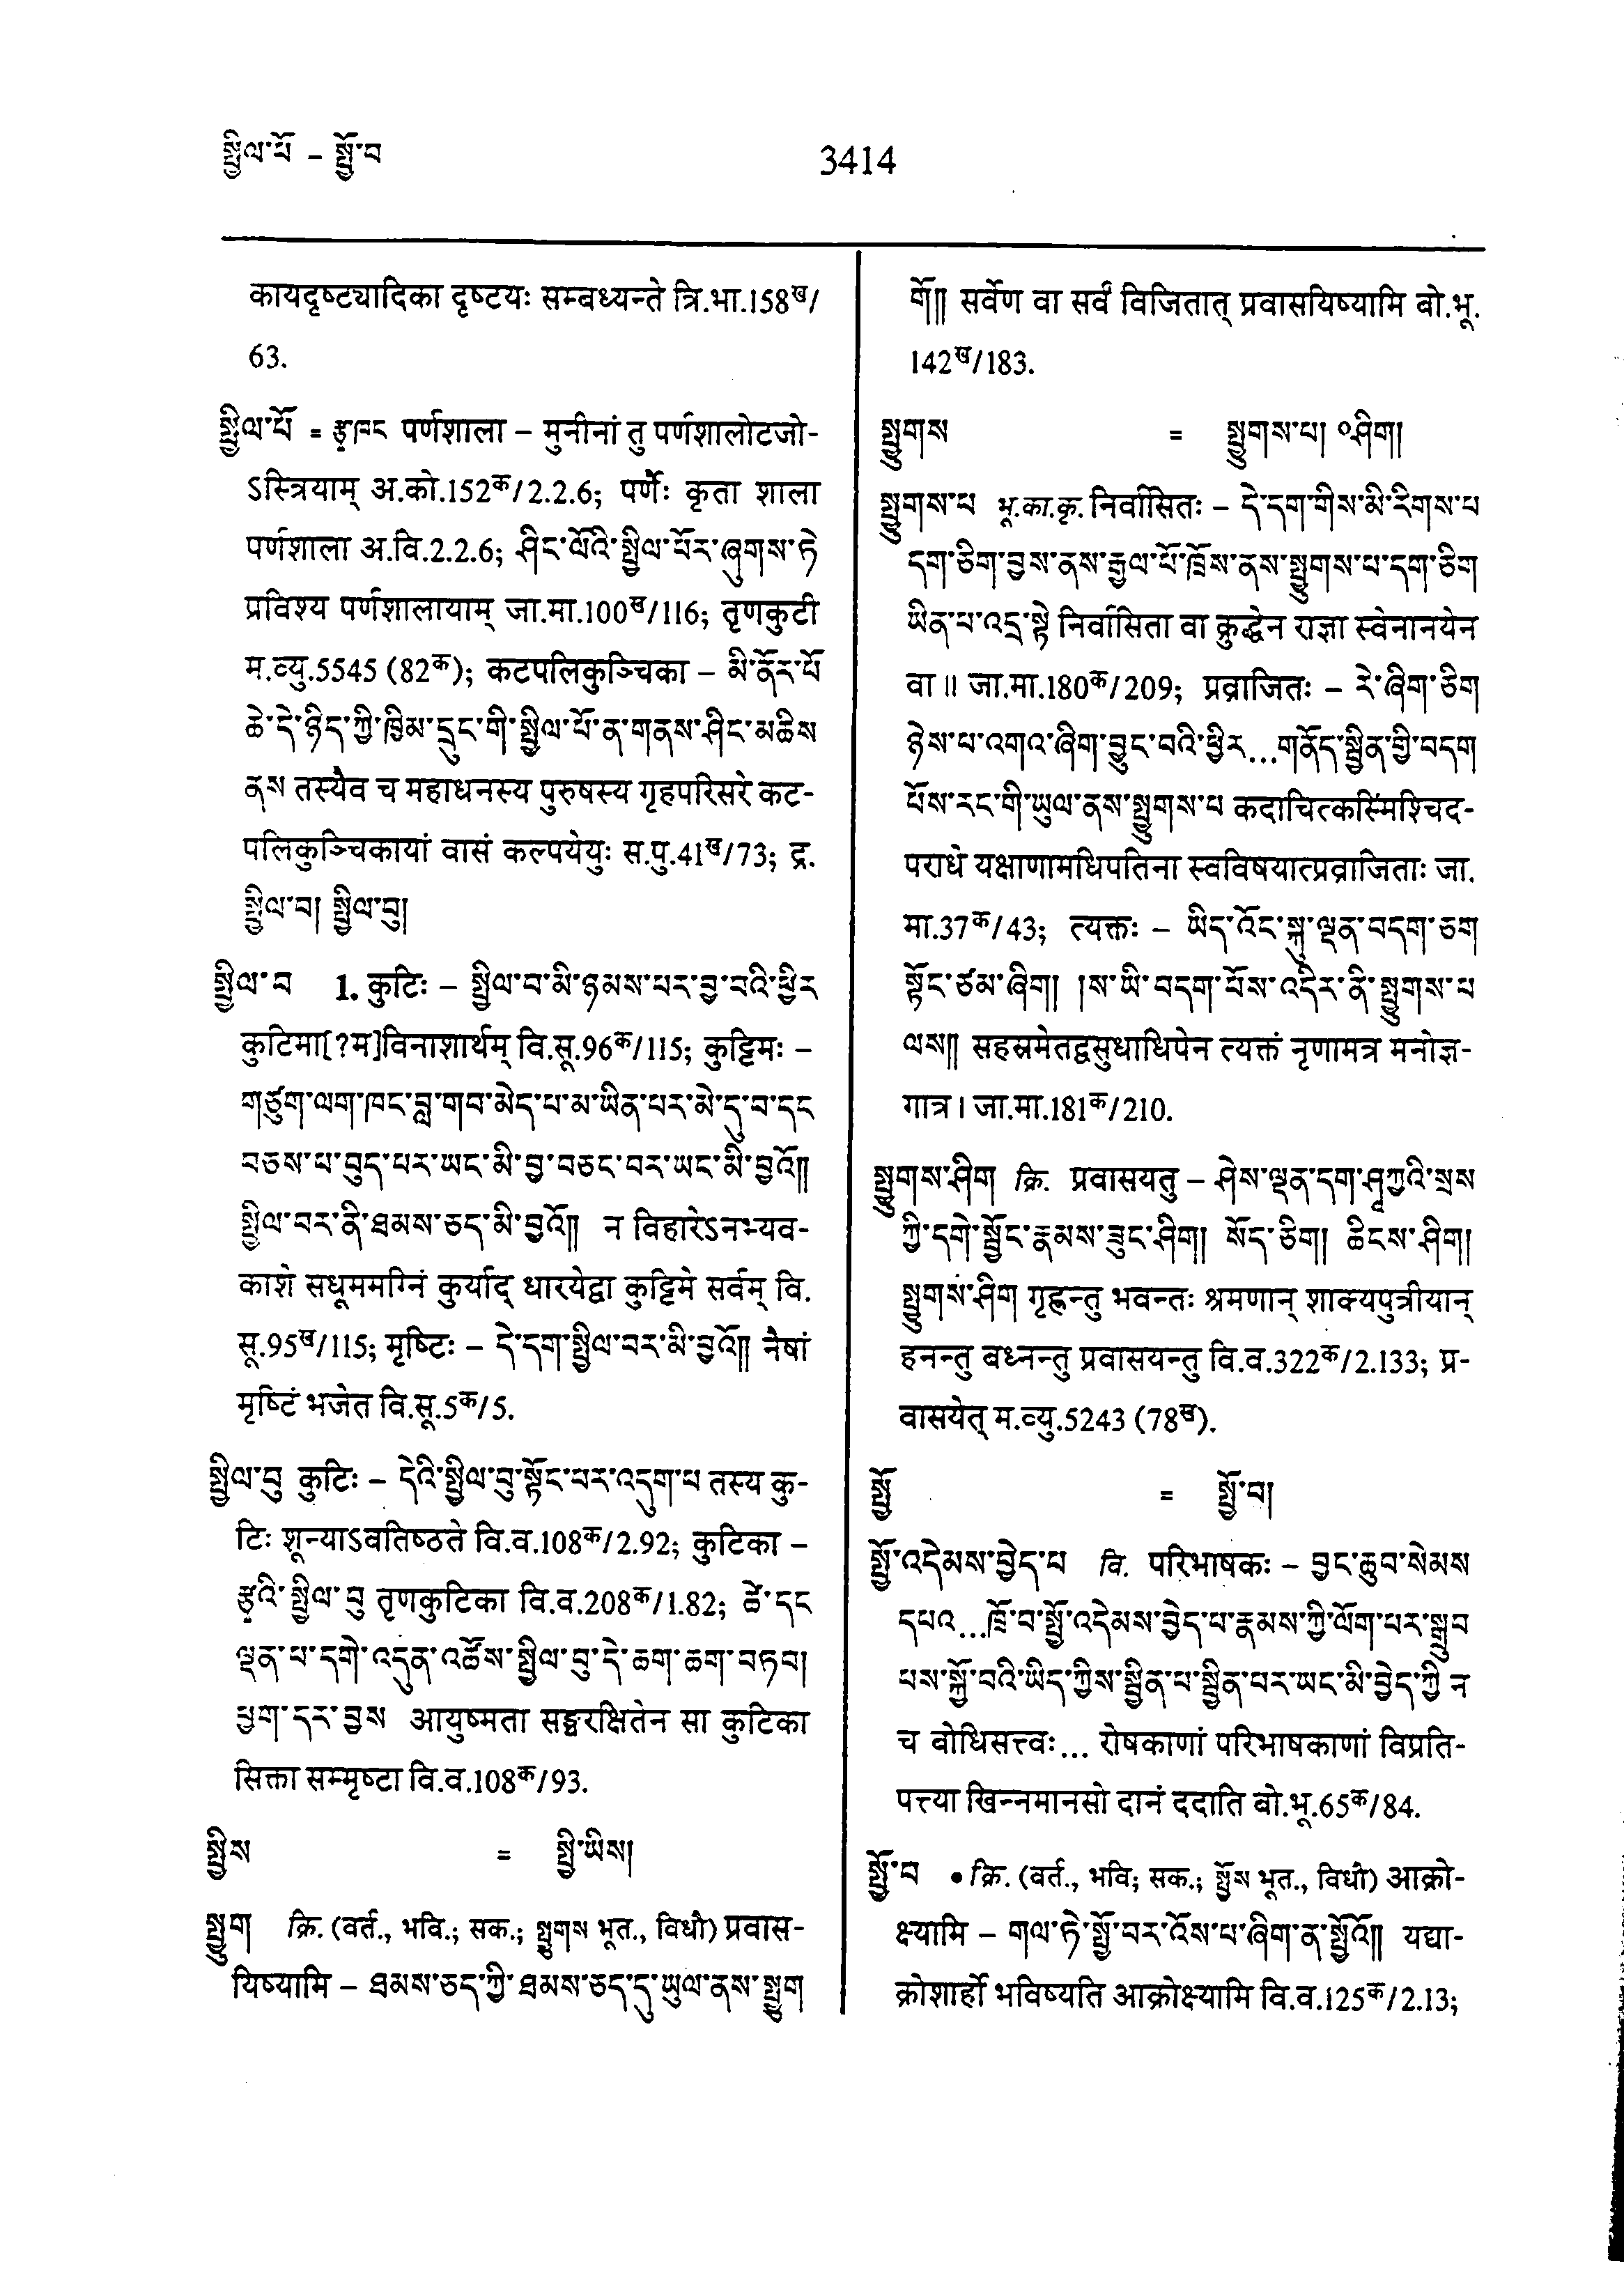 སྤྱིལ་པོ – སྤྱོ་བ
3414
कायदृष्ट्यादिका दृष्टयः सम्बध्यन्ते त्रि.भा.158ख/
63.
སྤྱིལ་པོ = རྩྭ་ཁང पर्णशाला – मुनीनां तु पर्णशालोटजो-
ऽस्त्रियाम् अ.को.152क/2.2.6; पर्णैः कृता शाला
पर्णशाला अ.वि.2.2.6; ཤིང་ལོའི་སྤྱིལ་པོར་ཞུགས་ཏེ
प्रविश्य पर्णशालायाम् जा.मा.100ख/116; तृणकुटी
म.व्यु.5545 (82क); कटपलिकुञ्चिका – མི་ནོར་པོ
ཆེ་དེ་ཉིད་ཀྱི་ཁྱིམ་དྲུང་གི་སྤྱིལ་པོ་ན་གནས་ཤིང་མཆིས
ནས तस्यैव च महाधनस्य पुरुषस्य गृहपरिसरे कट-
पलिकुञ्चिकायां वासं कल्पयेयुः स.पु.41ख/73; द्र.
སྤྱིལ་བ། སྤྱིལ་བུ།
སྤྱིལ་བ 1. कुटिः – སྤྱིལ་བ་མི་ཉམས་པར་བྱ་བའི་ཕྱིར
कुटिमा[?म]विनाशार्थम् वि.सू.96क/115; कुट्टिमः –
གཙུག་ལག་ཁང་བླ་གབ་མེད་པ་མ་ཡིན་པར་མེ་དུ་བ་དང
བཅས་པ་བུད་པར་ཡང་མི་བྱ་བཅང་བར་ཡང་མི་བྱའོ༎
སྤྱིལ་བར་ནི་ཐམས་ཅད་མི་བྱའོ༎ न विहारेऽनभ्यव-
काशे सधूममग्निं कुर्याद् धारयेद्वा कुट्टिमे सर्वम् वि.
सू.95ख/115; मृष्टिः – དེ་དག་སྤྱིལ་བར་མི་བྱའོ༎ नैषां
मृष्टिं भजेत वि.सू.5क/5.
སྤྱིལ་བུ कुटिः – དེའི་སྤྱིལ་བུ་སྟོང་པར་འདུག་པ तस्य कु-
टिः शून्याऽवतिष्ठते वि.व.108क/2.92; कुटिका –
རྩྭའི་སྤྱིལ་བུ तृणकुटिका वि.व.208क/1.82; ཚེ་དང
ལྡན་པ་དགེ་འདུན་འཚོས་སྤྱིལ་བུ་དེ་ཆག་ཆག་བཏབ།
ཕྱག་དར་བྱས आयुष्मता सङ्घरक्षितेन सा कुटिका
सिक्ता सम्मृष्टा वि.व.108क/93.
སྤྱིས = སྤྱི་ཡིས།
སྤྱུག क्रि. (वर्त., भवि.; सक.; སྤྱུགས भूत., विधौ) प्रवास-
यिष्यामि – ཐམས་ཅད་ཀྱི་ཐམས་ཅད་དུ་ཡུལ་ནས་སྤྱུག
གོ༎ सर्वेण वा सर्वं विजितात् प्रवासयिष्यामि बो.भू.
142ख/183.
སྤྱུགས = སྤྱུགས་པ། ०ཤིག།
སྤྱུགས་པ भू.का.कृ. निर्वासितः – དེ་དག་གིས་མི་རིགས་པ
དག་ཅིག་བྱས་ནས་རྒྱལ་པོ་ཁྲོས་ནས་སྤྱུགས་པ་དག་ཅིག
ཡིན་པ་འདྲ་སྟེ निर्वासिता वा क्रुद्धेन राज्ञा स्वेनानयेन
वा ॥ जा.मा.180क/209; प्रव्राजितः – རེ་ཞིག་ཅིག
ཉེས་པ་འགའ་ཞིག་བྱུང་བའི་ཕྱིར...གནོད་སྦྱིན་གྱི་བདག
པོས་རང་གི་ཡུལ་ནས་སྤྱུགས་པ कदाचित्कस्मिंश्चिद-
पराधे यक्षाणामधिपतिना स्वविषयात्प्रव्राजिताः जा.
मा.37क/43; त्यक्तः – ཡིད་འོང་སྐུ་ལྡན་བདག་ཅག
སྟོང་ཙམ་ཞིག། །ས་ཡི་བདག་པོས་འདིར་ནི་སྤྱུགས་པ
ལས༎ सहस्रमेतद्वसुधाधिपेन त्यक्तं नृणामत्र मनोज्ञ-
गात्र । जा.मा.181क/210.
སྤྱུགས་ཤིག क्रि. प्रवासयतु – ཤེས་ལྡན་དག་ཤཱཀྱའི་སྲས
ཀྱི་དགེ་སྦྱོང་རྣམས་ཟུང་ཤིག། སོད་ཅིག། ཆིངས་ཤིག།
སྤྱུགས་ཤིག गृह्णन्तु भवन्तः श्रमणान् शाक्यपुत्रीयान्
हनन्तु बध्नन्तु प्रवासयन्तु वि.व.322क/2.133; प्र-
वासयेत् म.व्यु.5243 (78ख).
སྤྱོ = སྤྱོ་བ།
སྤྱོ་འདེམས་བྱེད་པ वि. परिभाषकः – བྱང་ཆུབ་སེམས
དཔའ...ཁྲོ་བ་སྤྱོ་འདེམས་བྱེད་པ་རྣམས་ཀྱི་ལོག་པར་སྒྲུབ
པས་སྐྱོ་བའི་ཡིད་ཀྱིས་སྦྱིན་པ་སྦྱིན་པར་ཡང་མི་བྱེད་ཀྱི न
च बोधिसत्त्वः... रोषकाणां परिभाषकाणां विप्रति-
पत्त्या खिन्नमानसो दानं ददाति बो.भू.65क/84.
སྤྱོ་བ • क्रि. (वर्त., भवि; सक.; སྤྱོས भूत., विधौ) आक्रो-
क्ष्यामि – གལ་ཏེ་སྤྱོ་བར་འོས་པ་ཞིག་ན་སྤྱོའོ༎ यद्या-
क्रोशार्हो भविष्यति आक्रोक्ष्यामि वि.व.125क/2.13;